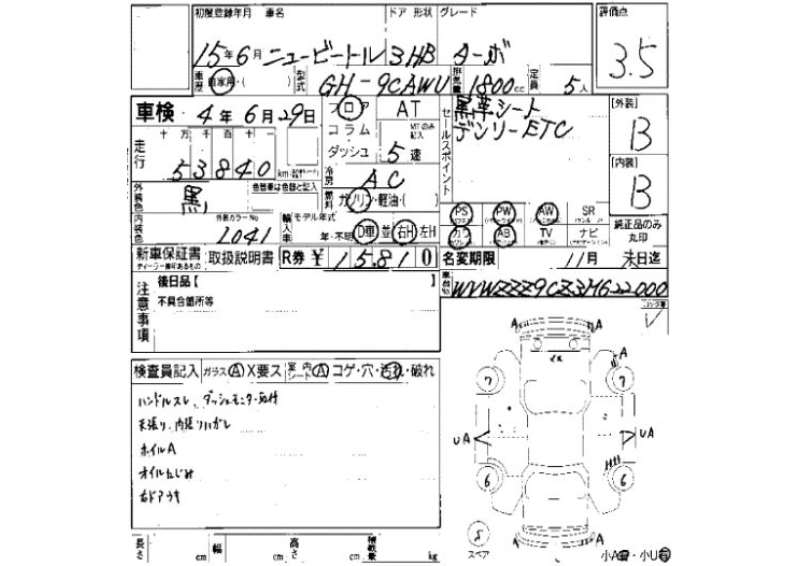 初度登録年月 車名 ドア 形状 グレード 評価点
15年6月 ニュービートル 3HB ターボ 3.5
車歴 自家用・( ) 型式 GH-9CAWU 排気量 1800cc 定員 5人
車検 4年6月29日 フロア AT 黒革シート [外装]
コラム MTのみ記入 デンリー ETC B
走行 十 万 千 百 十 一 ダッシュ 5速 セールスポイント [内装]
53840 km 冷房 AC B
外装色 黒 色替車は色替と記入 燃料 ガソリン・軽油・( )
PS PW AW SR
内装色 外装カラーNo 1041 輸入車 モデル年式 年・不明 D車 並 右H 左H AB TV ナビ 純正品のみ丸印
新車保証書 取扱説明書 R券 ¥15810 名変期限 11月 末日迄
ディーラー印があるもの
注意事項 後日品【 】 車台No WVWZZZ9CZ3M622000
不具合箇所等
検査員記入 ガラス A X要ス 室内シート A コゲ・穴・汚れ・破れ
ハンドルスレ、ダッシュモニター取付
天張り、内張りハガレ
ホイルA
オイルにじみ
右ドアウキ
A A
A
7 7
UA UA
6 6
8
スペア
A A
小A・小U
長さ cm 幅 cm 高さ cm 積載量 kg